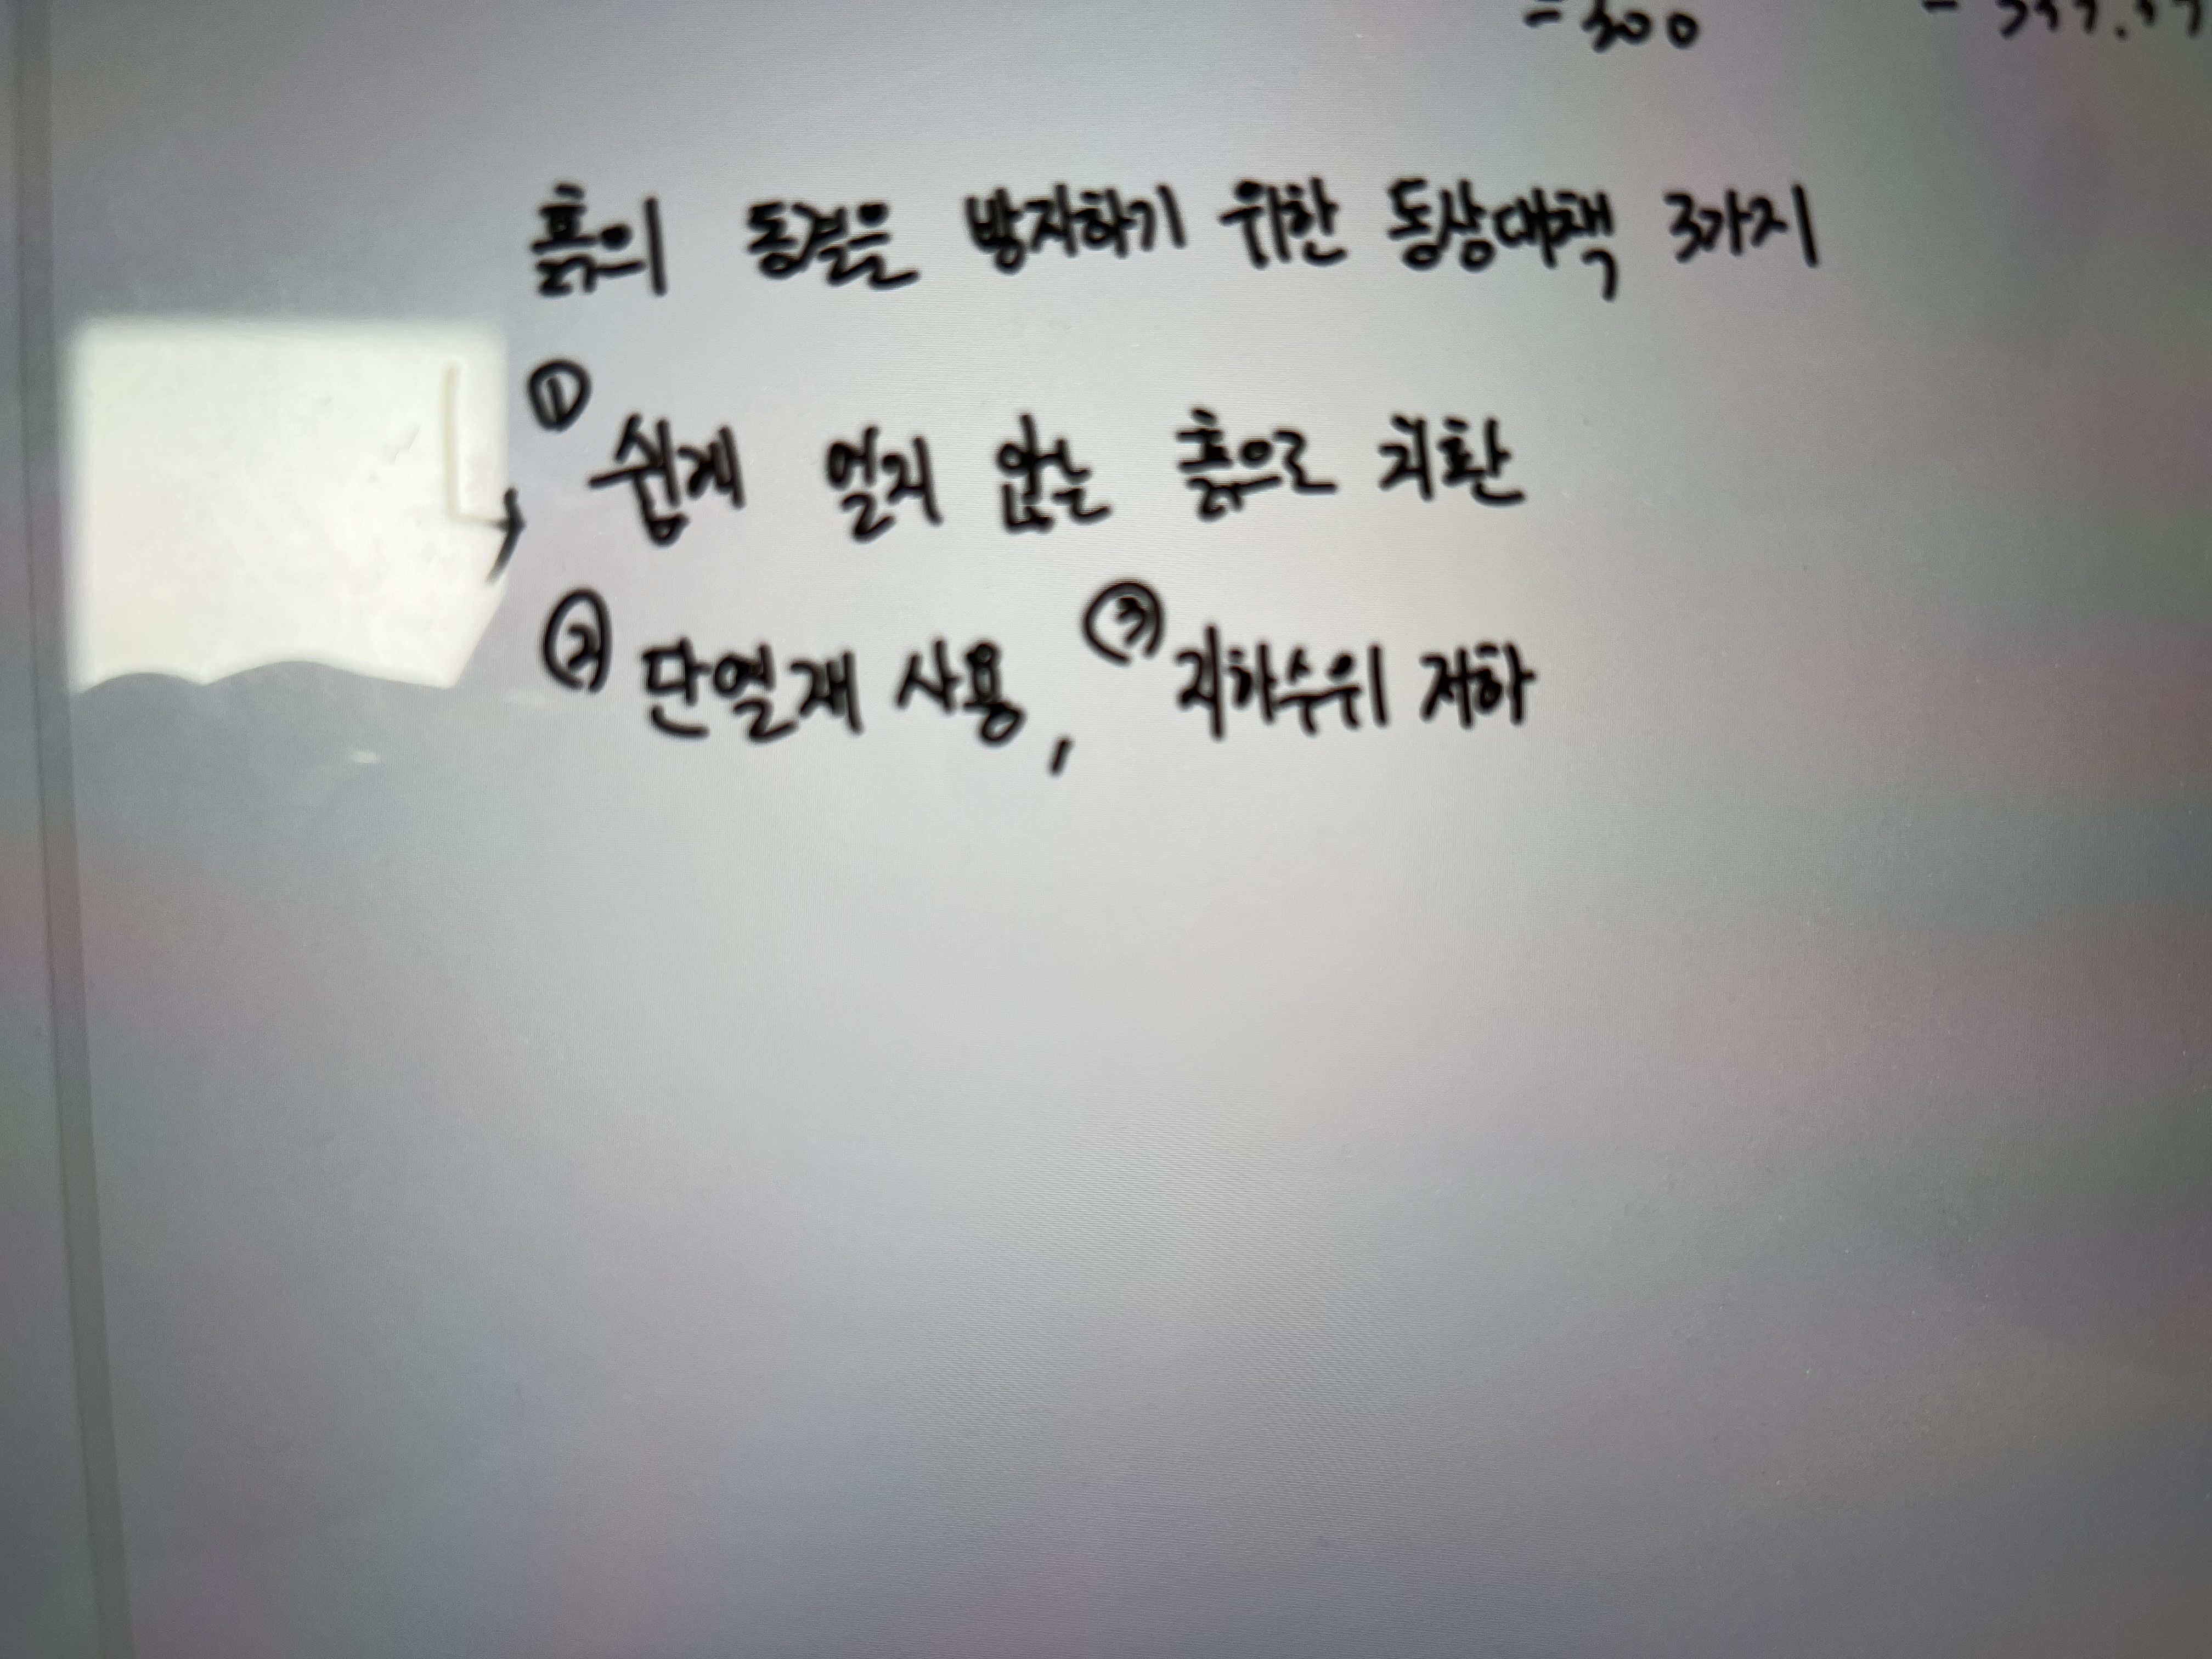 = 300
흙의 동결을 방지하기 위한 동상대책 3가지
① 쉽게 얼지 않는 흙으로 치환
② 단열재 사용, ③ 지하수위 저하